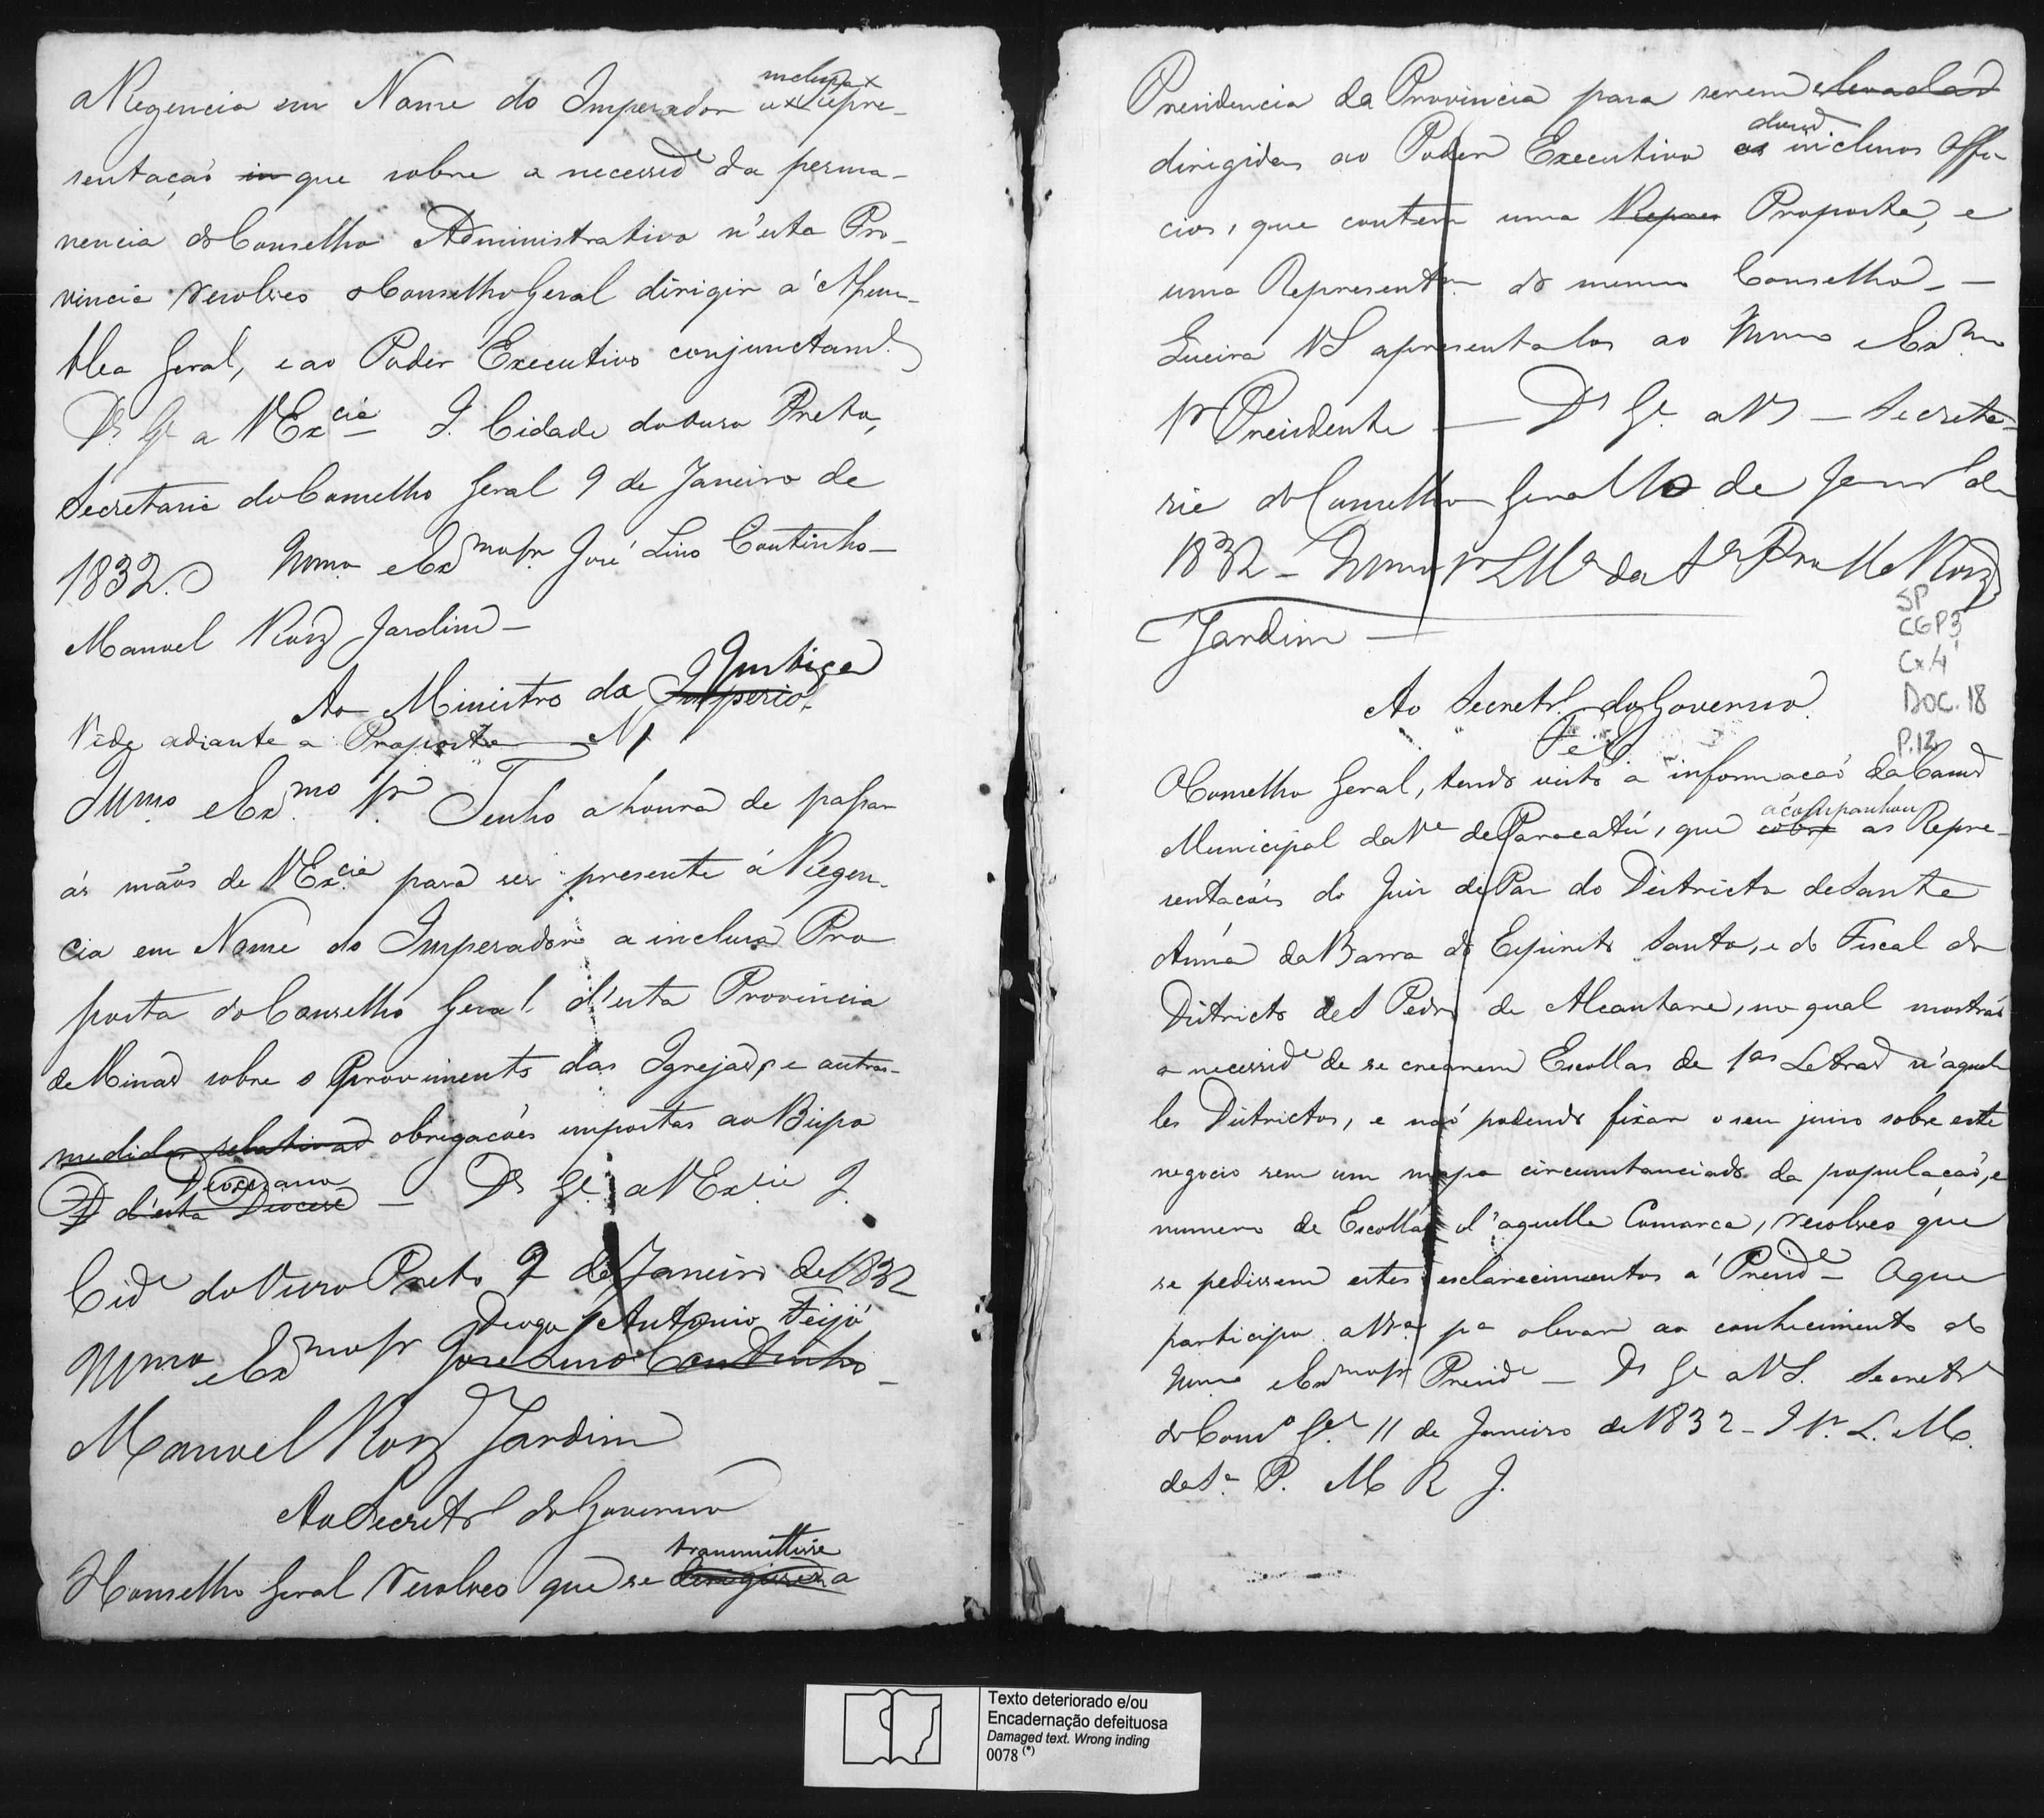 a Regencia em Nome do Imperador a x inclusa x repre-
sentação in que sobre a necessid.e da perma-
nencia do Conselho Administrativo n'esta Pro-
vincia resolveo o Conselho Geral dirigir á Assem-
blea Geral, e ao Poder Executivo conjunctam.e
D.s G.e a V Ex.cia I. Cidade do Ouro Preto,
Secretaria do Conselho Geral 9 de Janeiro de
1832. Illmo e Exmo Sr José Lino Coutinho-
Manoel Roiz Jardim-
Ao Ministro da Imperio Justiça
Vide adiante a Proposta N 1
Illmo e Ex.mo Sr. Tenho a honra de passar
ás mãos de V Ex.cia para ser presente á Regen-
cia em Nome do Imperador a inclusa Pro
posta do Conselho Geral d'esta Provincia
de Minas sobre o Provimento das Igrejas, e outras
medidas relativas obrigações impostas ao Bispo
D d'esta Diocese Diocesano - D.s G.e a V Ex.cia I.
Cid.e do Ouro Preto 9 de Janeiro de 1832
Illmo e Exmo Sr José Lino Coutinho Diogo Antonio Feijó-
Manoel Roiz Jardim
Ao Secretr.o do Governo
O Conselho Geral resolveo que se dirigissem transmittisse a
Presidencia da Provincia para serem elevadas
dirigidas ao Poder Executivo os dous inclusos Offi-
cios, que contem uma Repres Proposta, e
uma Represent.am do mesmo Conselho-
Queira VS apresentalos ao Illmo e Exmo
Sr Presidente - D.s G.e a VS - Secreta-
ria do Conselho Geral 10 de Janr.o de
1832 - Illmo Sr L M.a da S.a P.ra M.el Roiz
Jardim-
SP
CGP3
Cx.4
DOC. 18
P.12
Ao Secretr.o do Governo
O Conselho Geral, tendo visto a informação da Cam.a
Municipal da V.a de Paracatú, que sobre acompanhou as Repre-
sentações do Juiz de Paz do Districto de Santa
Anna da Barra do Espirito Santo, e do Fiscal do
Districto de S Pedro de Alcantara, no qual mostrão
a necessid.e de se crearem Escollas de 1as Letras n'aquel-
les Districtos, e não podendo fixar o seu juizo sobre este
negocio sem um mapa circumstanciado da população, e
numero de Escollas d'aquella Comarca, resolveo que
se pedissem estes esclarecimentos á Presid.e - O que
participo a VS.a p.a o levar ao conhecimento do
Illmo e Exmo Sr Presid.e - D.s G.e a VS. Secretr.a
do Cons.o G.al 11 de Janeiro de 1832 - I Sr. L. M.
da S.a P. M R J.
Texto deteriorado e/ou
Encadernação defeituosa
Damaged text. Wrong inding
0078 (*)